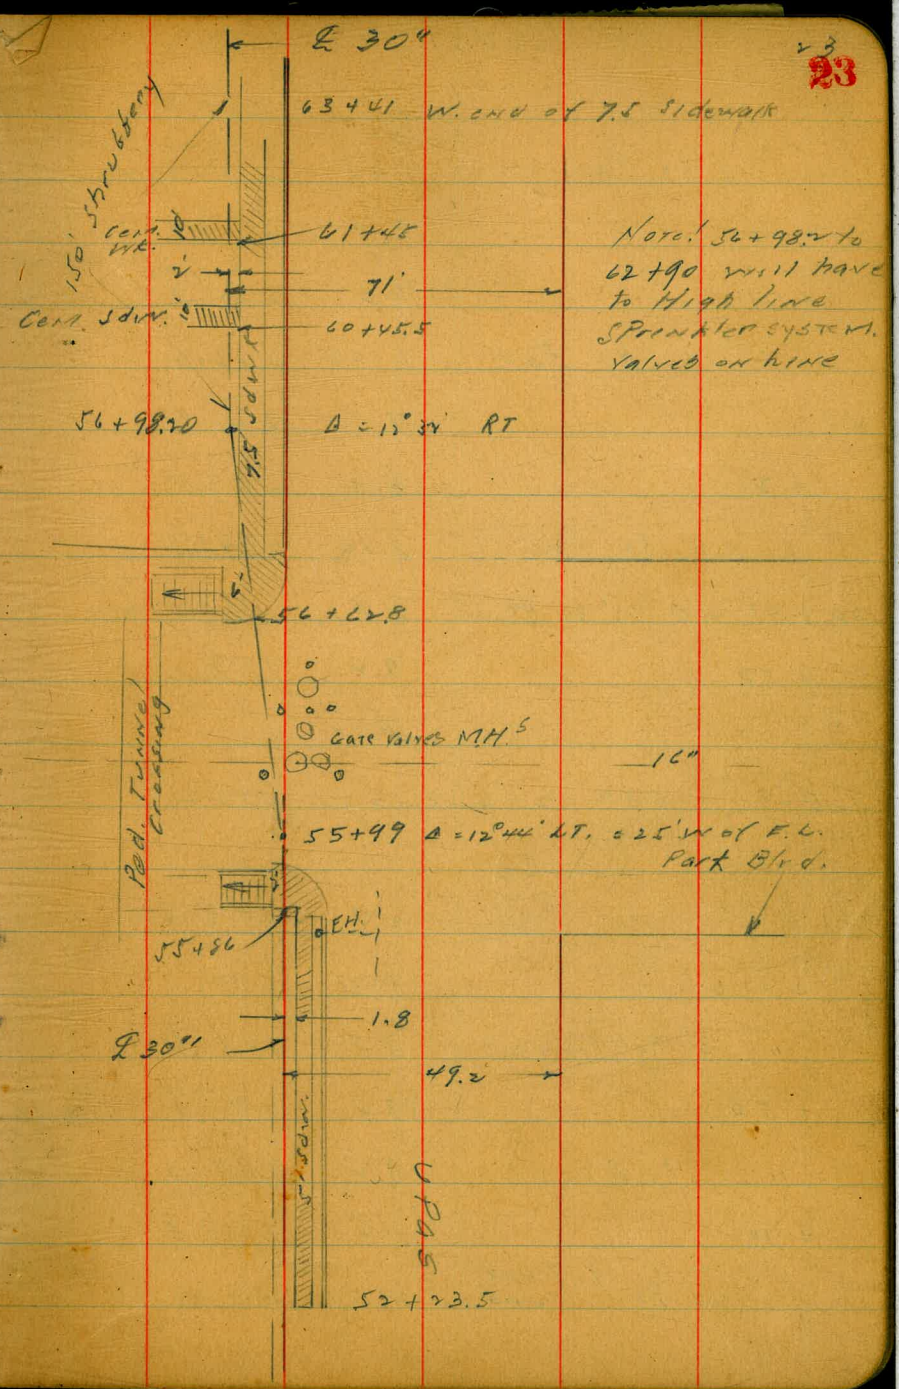 ℄ 30"
23
23
63+41 W. end of 7.5 Sidewalk
150' Shrubbery
Cem. Wk.
10'
61+45
2'
71'
Cem. Sdw.
10'
60+45.5
Note! 56+98.2 to
62+90 will have
to High line
Sprinkler system.
Valves on line
7.5 Sdwk
56+98.20
Δ = 12° 32' RT
6'
56+62.8
Ped. Tunnel
Crossing
Gate Valves MHs
16"
55+99 Δ = 12° 44' LT. = 25' W of E.L.
Park Blvd.
55+86
1.8
℄ 30"
49.2
5' Sdw.
52+23.5